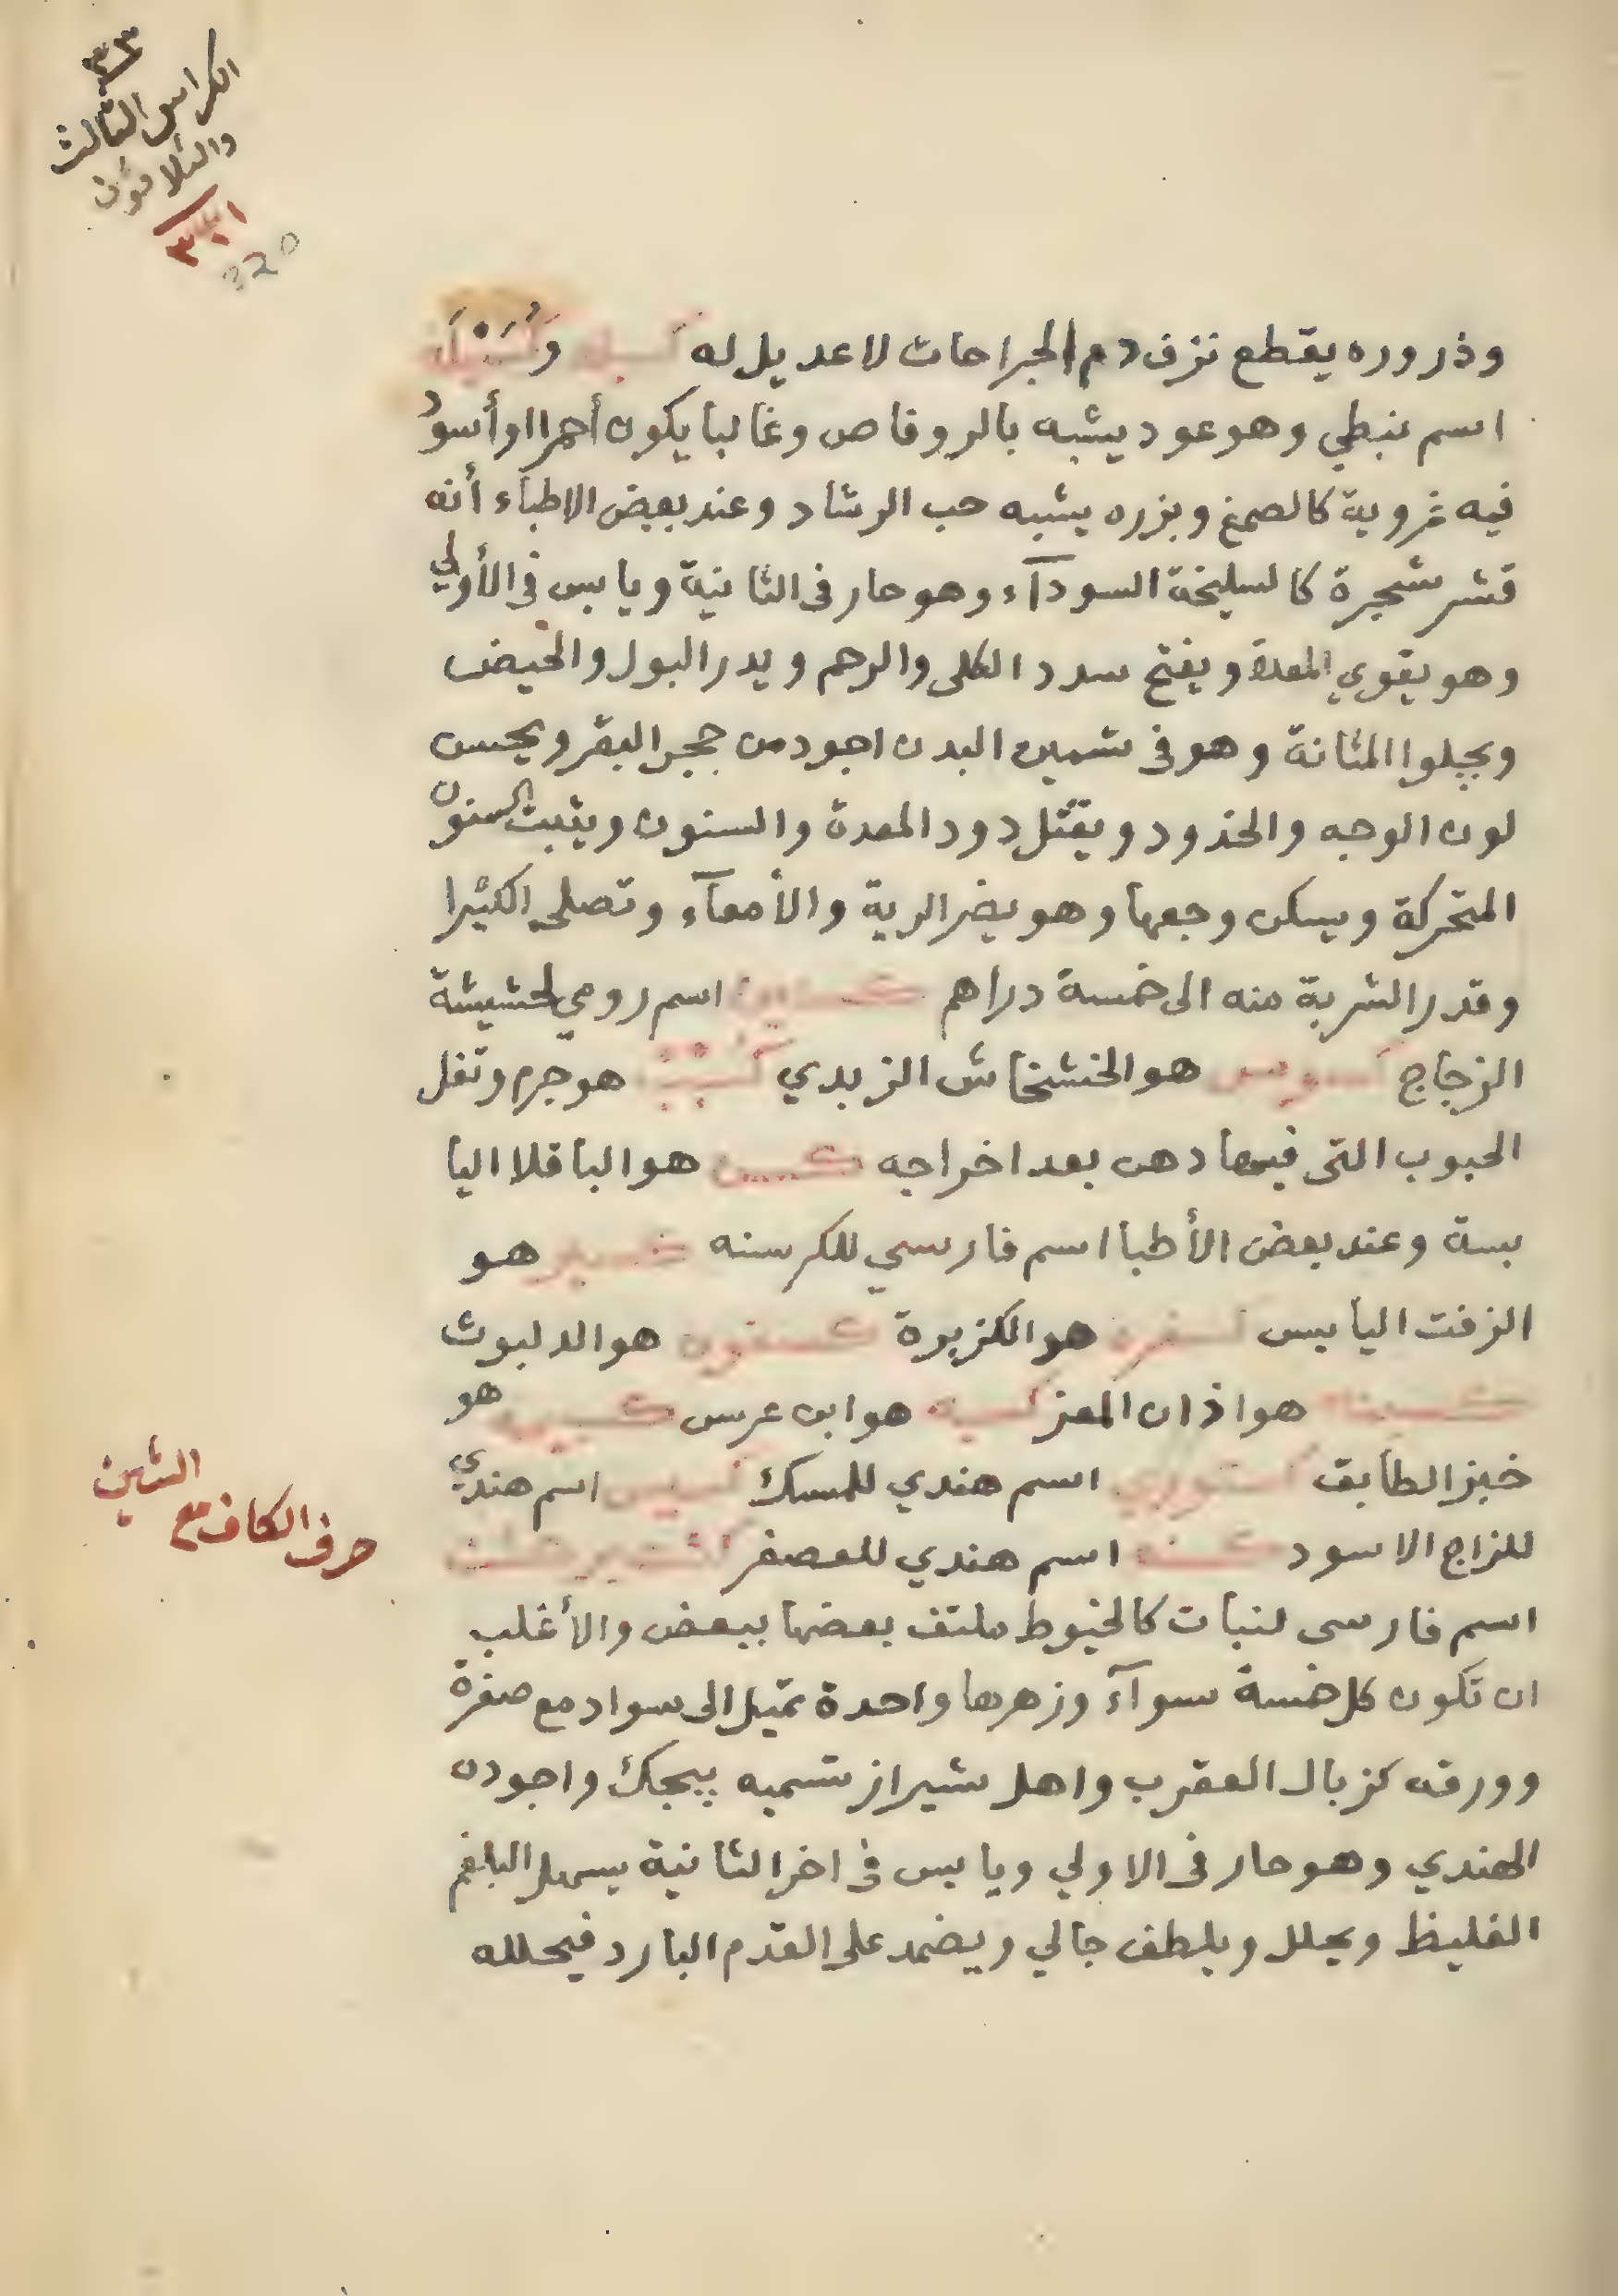 ٣٣
الكراس الثالث
والثلاثون
٣٠١
320
وذروره يقطع نزف دم الجراحات لا عديل له كسيله وكُسَيْلَا
اسم نبطي وهو عود يشبه بالروفاص وغالبا يكون أحمرا او أسود
فيه غروية كالصمغ وبزره يشبه حب الرشاد وعند بعض الاطباء أنه
قشر شجرة كالسليخة السودآء وهو حار فى الثانية ويابس فى الأولي
وهو يقوي المعدة ويفتح سدد الكلى والرحم ويدر البول والحيض
ويجلوا المثانة وهو فى تسمين البدن اجود من حجر البقر ويحسن
لون الوجه والخدود ويقتل دود المعدة والسنون ويثبت السنون
المتحركة ويسكن وجعها وهو يضر الرية والأمعآء وتصلحه الكثيرا
وقدر الشربة منه الى خمسة دراهم اسم رومي لحشيشة
الزجاج هو الخشخاش الزبدي هو جرم وتفل
الحبوب التى فيها دهن بعد اخراجه هو الباقلا اليا
بسة وعند بعض الأطبا اسم فارسي للكرسنه هو
الزفت اليابس هو الكزبرة هو الدلبوث
هو اذان المعز هو ابن عرس هو
خبز الطابق اسم هندي للمسك اسم هندي
للزاج الاسود اسم هندي للعصفر
حرف الكاف مع الشين
اسم فارسى لنبات كالخيوط ملتف بعضها ببعض والأغلب
ان تكون كل خمسة سوآء وزهرها واحدة تميل الى سواد مع صفرة
وورقه كزبال العقرب واهل شيراز تسميه پيچك واجوده
الهندي وهو حار فى الاولي ويابس فى اخر الثانية يسهل البلغم
الغليظ ويحلل ويلطف جالي ويضمد على القدم البارد فيحلله